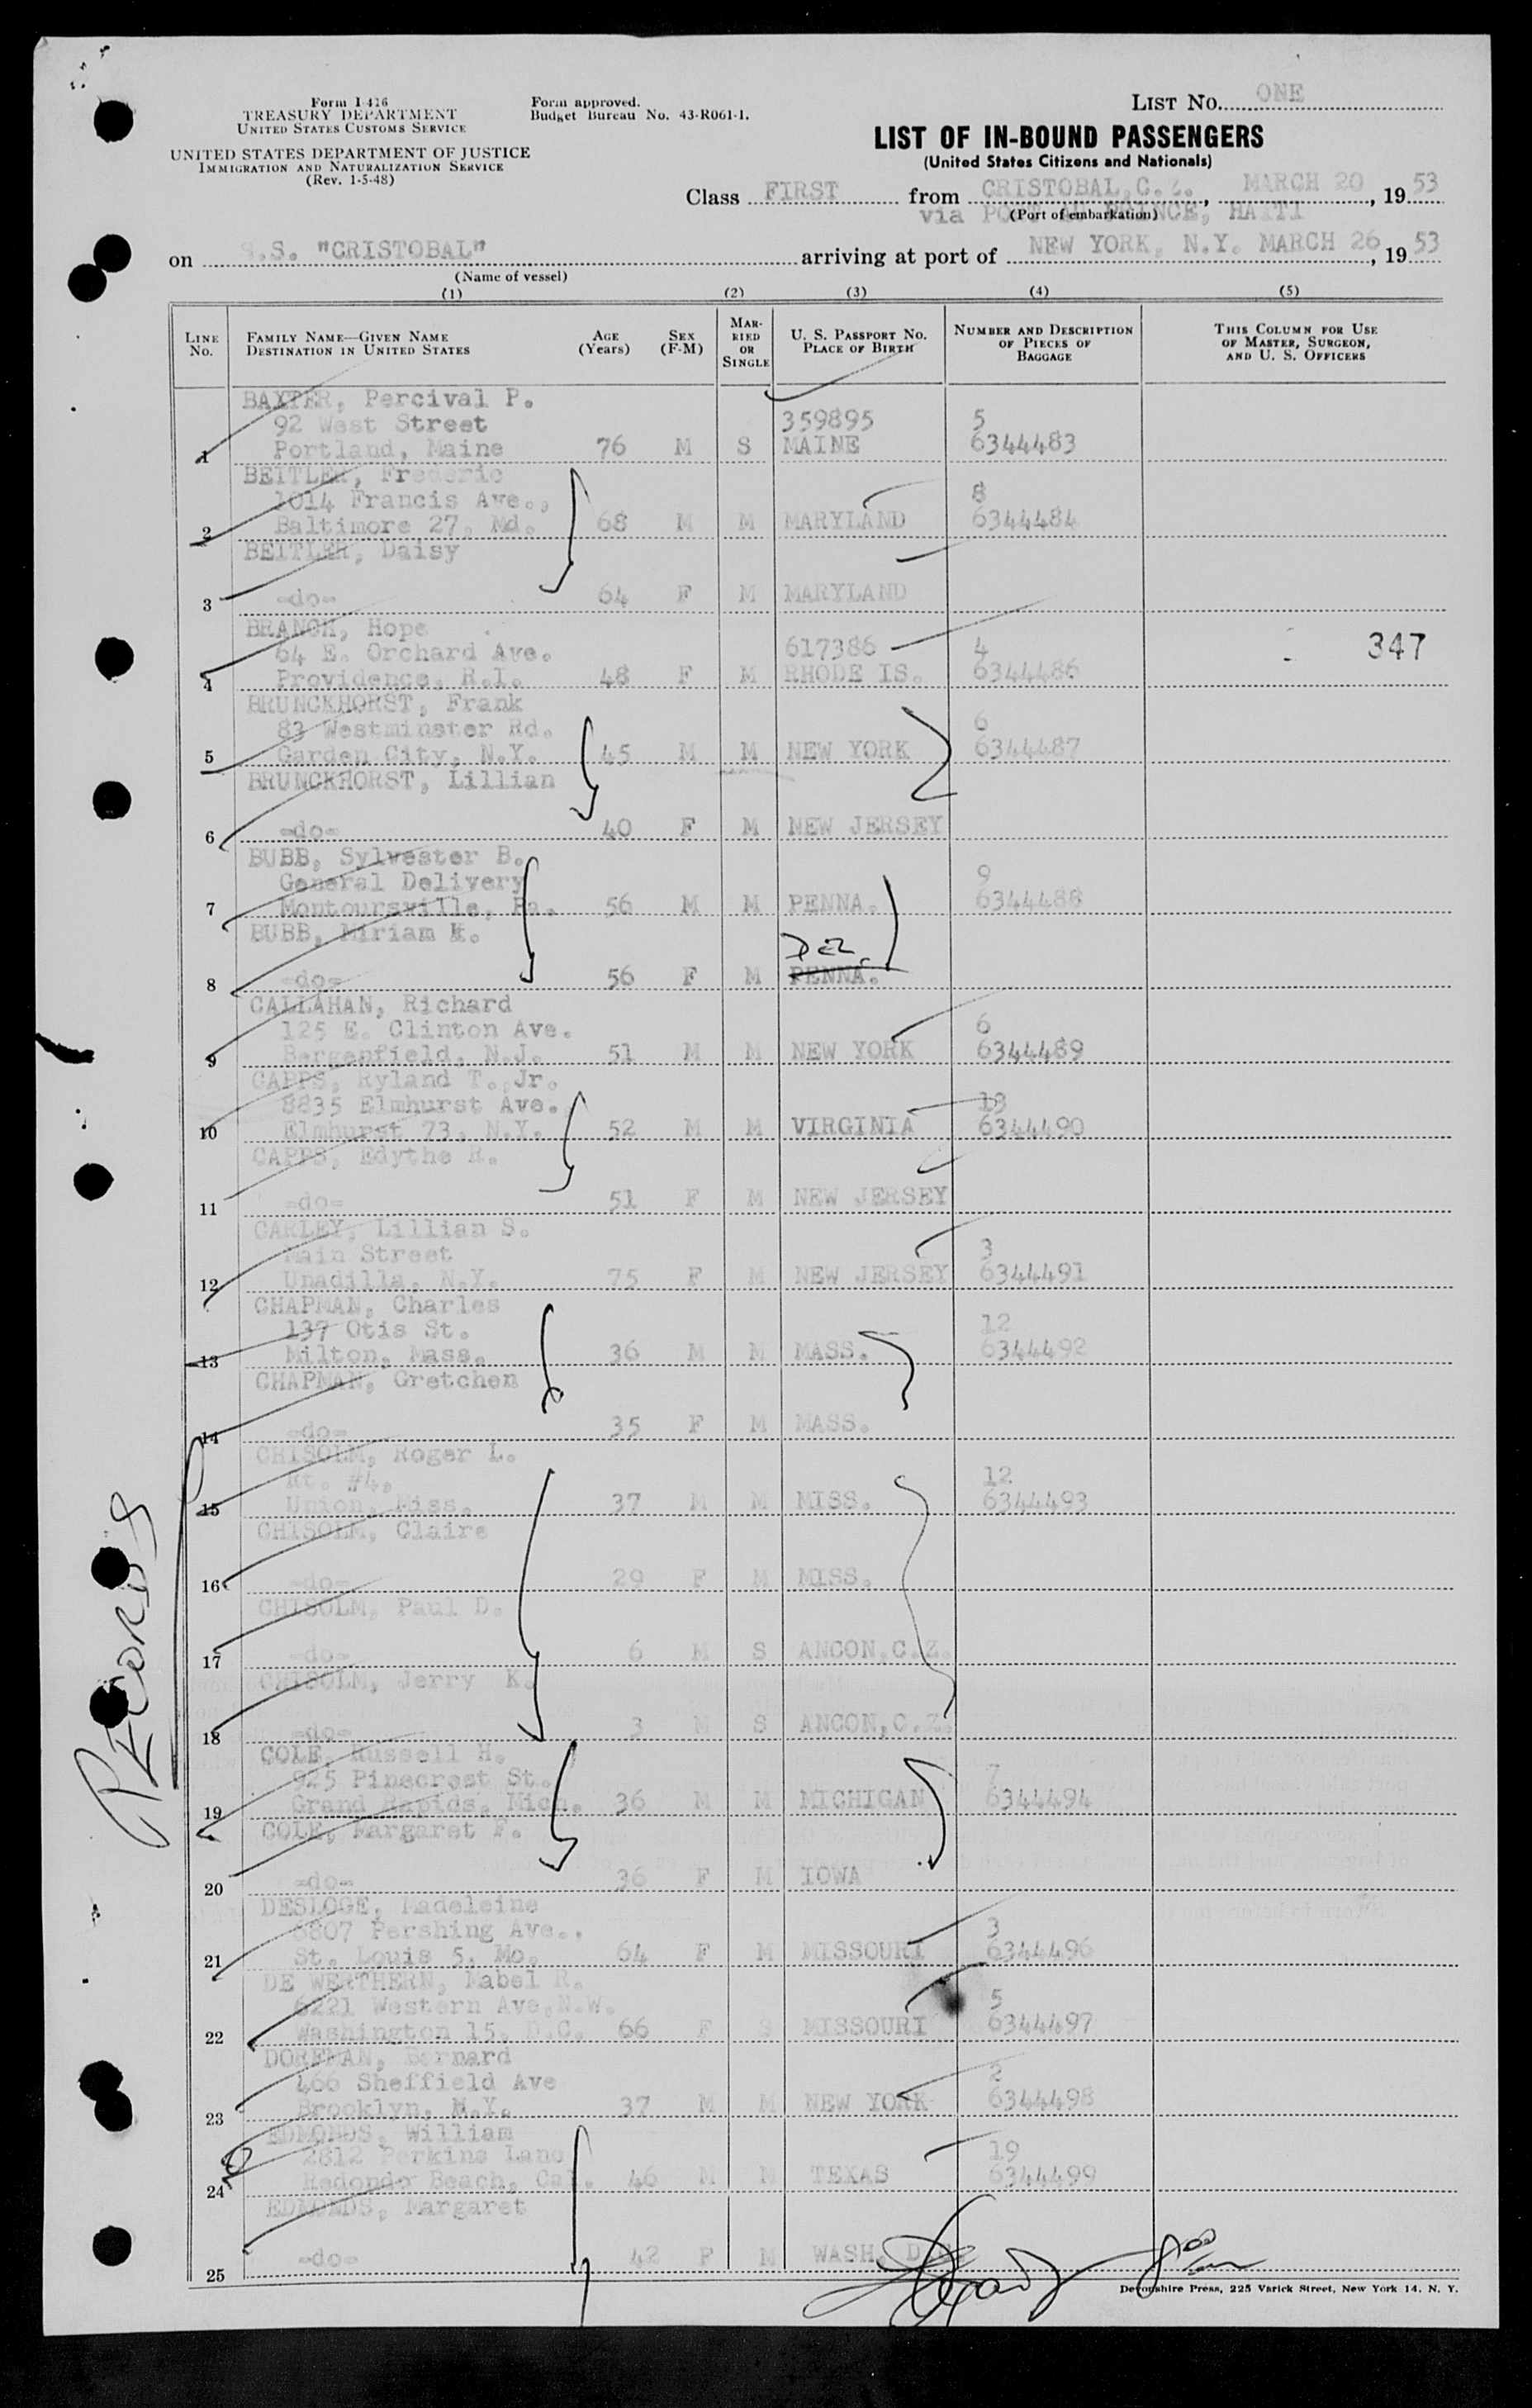 Form I-416
TREASURY DEPARTMENT
UNITED STATES CUSTOMS SERVICE
UNITED STATES DEPARTMENT OF JUSTICE
IMMIGRATION AND NATURALIZATION SERVICE
(Rev. 1-5-48)
Form approved.
Budget Bureau No. 43-R061-1.
LIST No. ONE
LIST OF IN-BOUND PASSENGERS
(United States Citizens and Nationals)
Class FIRST from CRISTOBAL, C. Z., MARCH 20, 1953
via PORT AU PRINCE, HAITI
(Port of embarkation)
on S.S. "CRISTOBAL" arriving at port of NEW YORK, N.Y. MARCH 26, 1953
(Name of vessel)
(1) (2) (3) (4) (5)
LINE No. FAMILY NAME—GIVEN NAME DESTINATION IN UNITED STATES AGE (Years) SEX (F-M) MARRIED OR SINGLE U. S. PASSPORT NO. PLACE OF BIRTH NUMBER AND DESCRIPTION OF PIECES OF BAGGAGE THIS COLUMN FOR USE OF MASTER, SURGEON, AND U. S. OFFICERS
BAXTER, Percival P.
92 West Street 359895 5
1 Portland, Maine 76 M S MAINE 6344483
BEITLER, Frederic
1014 Francis Ave., 8
2 Baltimore 27, Md. 68 M M MARYLAND 6344484
BEITLER, Daisy
3 -do- 64 F M MARYLAND
BRANCH, Hope
64 E. Orchard Ave. 617386 4 347
4 Providence, R.I. 48 F M RHODE IS. 6344486
BRUNCKHORST, Frank
83 Westminster Rd. 6
5 Garden City, N.Y. 45 M M NEW YORK 6344487
BRUNCKHORST, Lillian
6 -do- 40 F M NEW JERSEY
BUBB, Sylvester B.
General Delivery 9
7 Montoursville, Pa. 56 M M PENNA. 6344488
BUBB, Miriam K.
DEL.
8 -do- 56 F M PENNA.
CALLAHAN, Richard
125 E. Clinton Ave. 6
9 Bergenfield, N.J. 51 M M NEW YORK 6344489
CAPPS, Ryland T. Jr.
8835 Elmhurst Ave. 13
10 Elmhurst 73, N.Y. 52 M M VIRGINIA 6344490
CAPPS, Edythe R.
11 -do- 51 F M NEW JERSEY
CARLEY, Lillian S.
Main Street 3
12 Unadilla, N.Y. 75 F M NEW JERSEY 6344491
CHAPMAN, Charles
137 Otis St. 12
13 Milton, Mass. 36 M M MASS. 6344492
CHAPMAN, Gretchen
14 -do- 35 F M MASS.
CHISOLM, Roger L.
Rt. #4, 12
15 Union, Miss. 37 M M MISS. 6344493
CHISOLM, Claire
16 -do- 29 F M MISS.
CHISOLM, Paul D.
17 -do- 6 M S ANCON, C.Z.
CHISOLM, Jerry K.
18 -do- 3 M S ANCON, C.Z.
COLE, Russell H.
925 Pinecrest St. 7
19 Grand Rapids, Mich. 36 M M MICHIGAN 6344494
COLE, Margaret F.
20 -do- 36 F M IOWA
DESLOGE, Madeleine
Pershing Ave., 3
21 St. Louis 5, Mo. 64 F M MISSOURI 6344496
DE WERTHERN, Mabel R.
6221 Western Ave. N.W. 5
22 Washington 15, D.C. 66 F S MISSOURI 6344497
DORFMAN, Bernard
466 Sheffield Ave 2
23 Brooklyn, N.Y. 37 M M NEW YORK 6344498
EDMONDS, William
2812 Perkins Lane 19
24 Redondo Beach, Cal. 46 M M TEXAS 6344499
EDMONDS, Margaret
25 -do- 42 F M WASH, D.C.
RECORDS
Devonshire Press, 225 Varick Street, New York 14, N. Y.